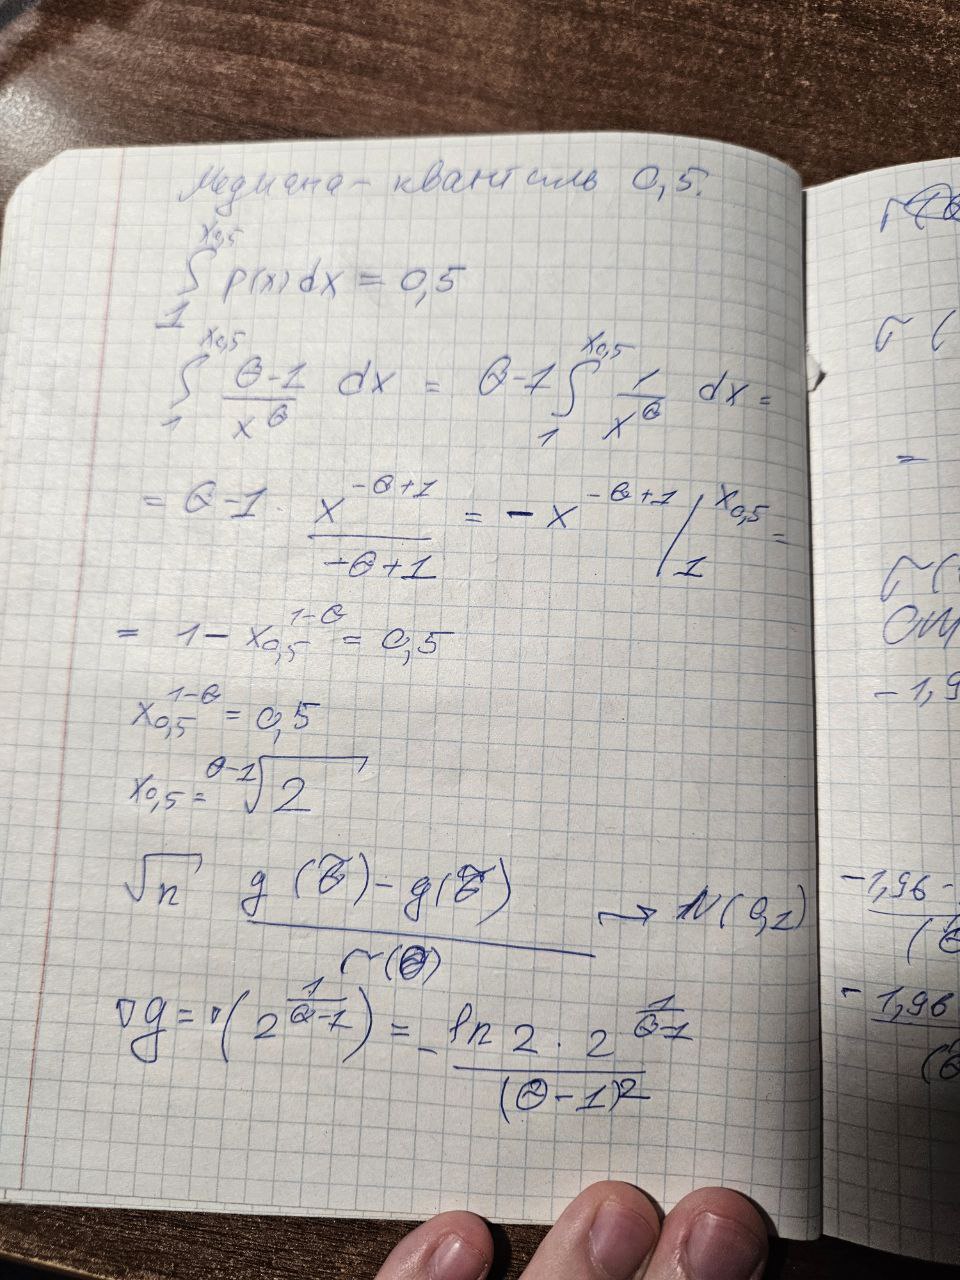 Медиана - квантиль 0,5.
∫₁^{x₀,₅} p(x) dx = 0,5
∫₁^{x₀,₅} (θ-1)/x^θ dx = θ-1 ∫₁^{x₀,₅} 1/x^θ dx =
= θ-1 · x^{-θ+1}/(-θ+1) = - x^{-θ+1} |₁^{x₀,₅} =
= 1 - x₀,₅^{1-θ} = 0,5
x₀,₅^{1-θ} = 0,5
x₀,₅ = ^{θ-1}√2
√n (g(θ̃) - g(θ̃))/σ(θ) → N(0,1)
∇g = ∇(2^{1/(θ-1)}) = - (ln 2 · 2^{1/(θ-1)})/(θ-1)²
σ(
=
σ(
- 1,9
-1,96 -
- 1,96